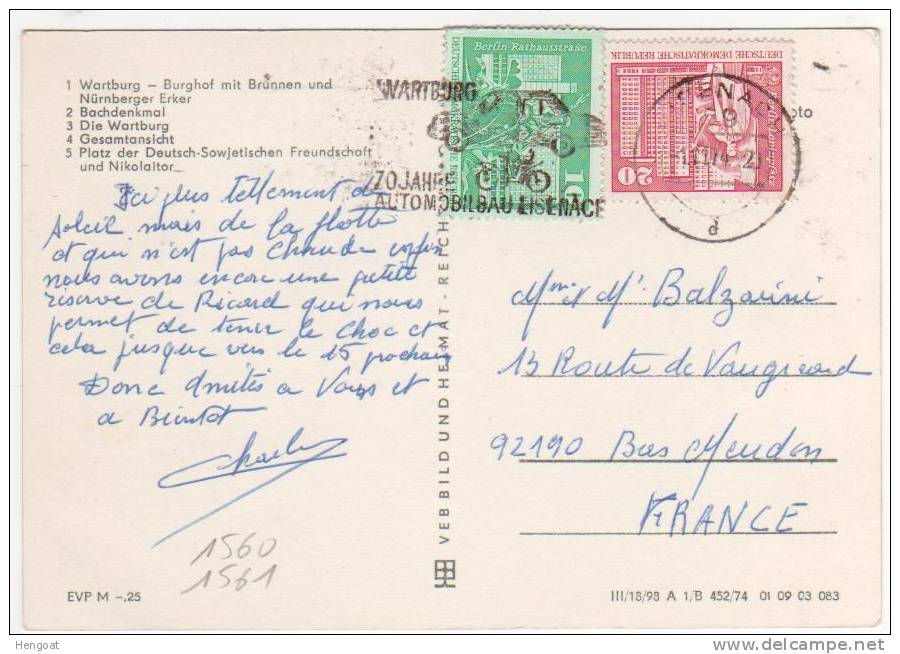 1 Wartburg – Burghof mit Brünnen und
Nürnberger Erker
2 Bachdenkmal
3 Die Wartburg
4 Gesamtansicht
5 Platz der Deutsch-Sowjetischen Freundschaft
und Nikolaitor
Ici plus tellement de
Soleil mais de la flotte
et qui n'est pas chaude enfin
nous avons encore une petite
réserve de Ricard qui nous
permet de tenir le choc et
cela jusque vers le 15 prochain
Donc Amitiés a Vous et
a Bientot
Charles
1560
1561
EVP M –,25
VEB BILD UND HEIMAT · REICH
WARTBURG
70 JAHRE
AUTOMOBILBAU EISENACH
Berlin-Rathausstraße
10
DEUTSCHE DEMOKRATISCHE REPUBLIK
20
EISENACH
d
oto
Mme et Mr Balzarini
13 Route de Vaugirard
92190 Bas Meudon
FRANCE
III/18/98 A 1/B 452/74 01 09 03 083
Hengoat